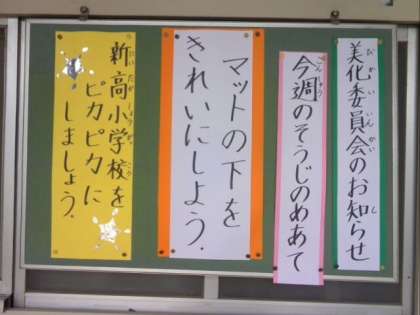 美化委員会のお知らせ
今週のそうじのめあて
マットの下を
きれいにしよう.
新高小学校を
ピカピカに
しましょう.